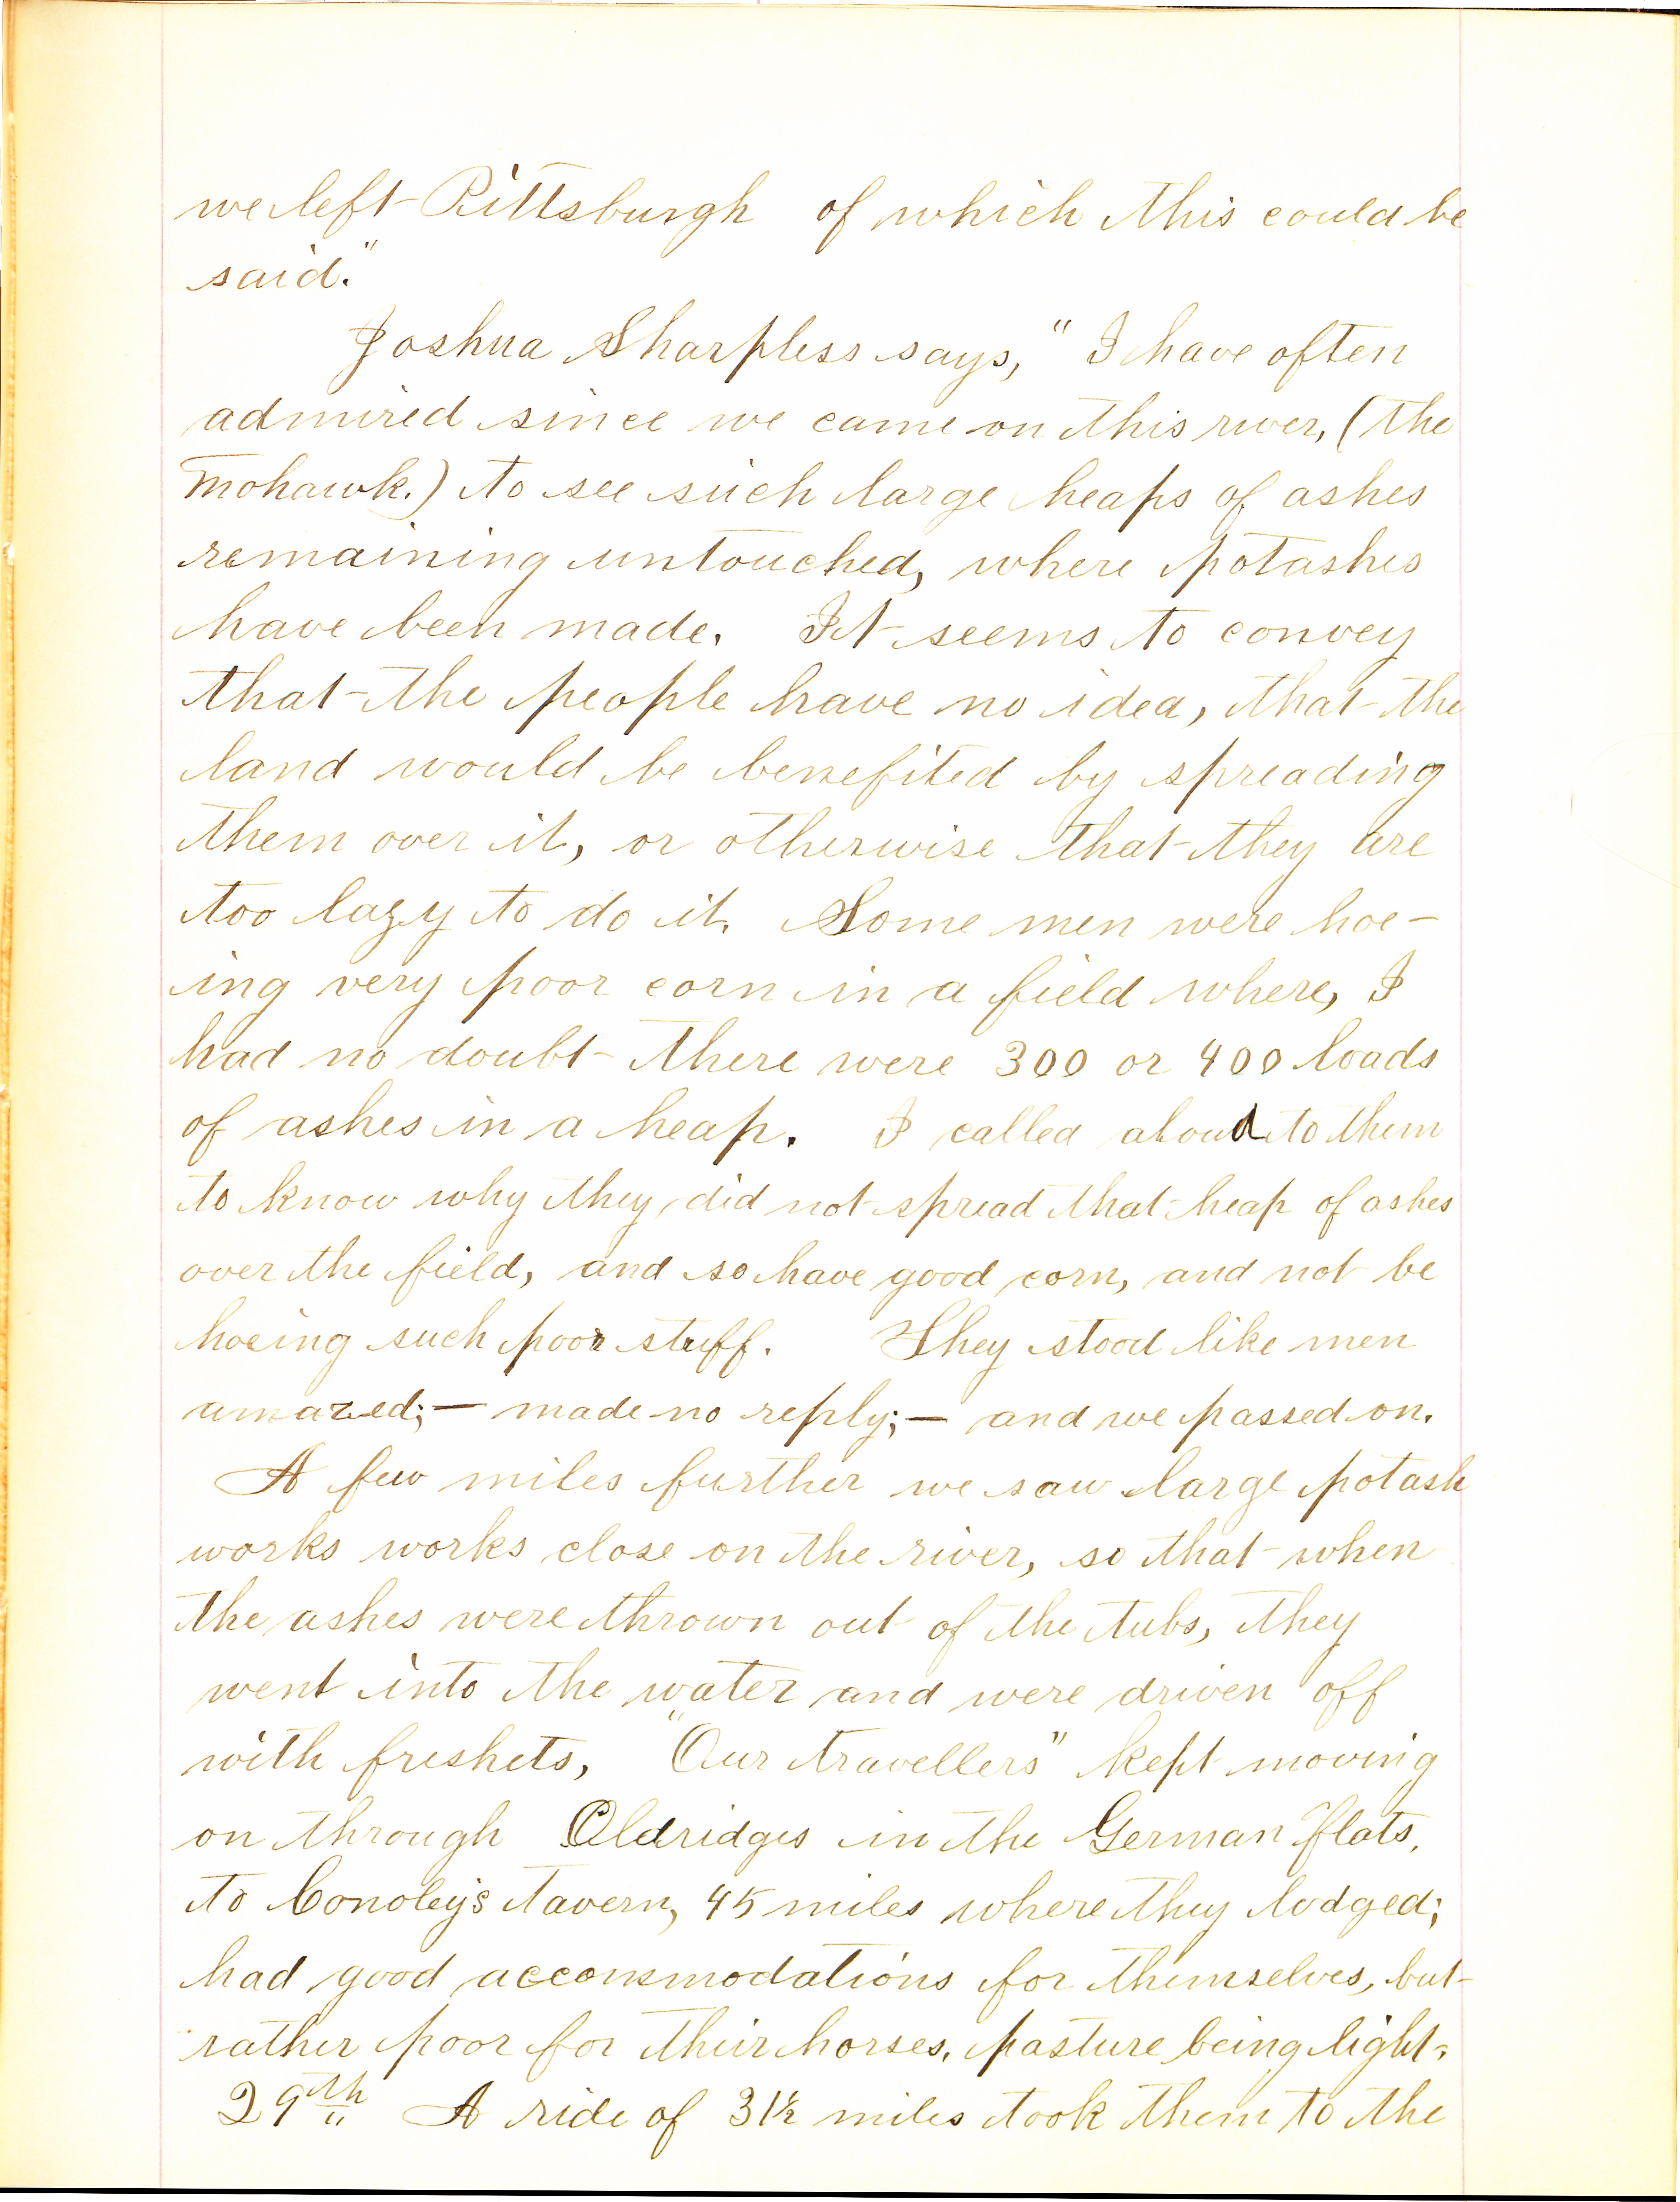 we left Pittsburgh of which this could be
said."
Joshua Sharpless says, "I have often
admired since we came on this river, (the
Mohawk.) to see such large heaps of ashes
remaining untouched, where potashes
have been made. It seems to convey
that the people have no idea, that the
land would be benefited by spreading
them over it, or otherwise that they are
too lazy to do it. Some men were hoe-
ing very poor corn in a field where, I
had no doubt there were 300 or 400 loads
of ashes in a heap. I called aloud to them
to know why they did not spread that heap of ashes
over the field, and so have good corn, and not be
hoeing such poor stuff. They stood like men
amazed; — made no reply; — and we passed on.
A few miles further we saw large potash
works works close on the river, so that when
the ashes were thrown out of the tubs, they
went into the water and were driven off
with freshets, "Our travellers" kept moving
on through Eldridges in the German flats,
to Conoley's tavern, 45 miles where they lodged;
had good accommodations for themselves, but
rather poor for their horses, pasture being light.
29th A ride of 31½ miles took them to the